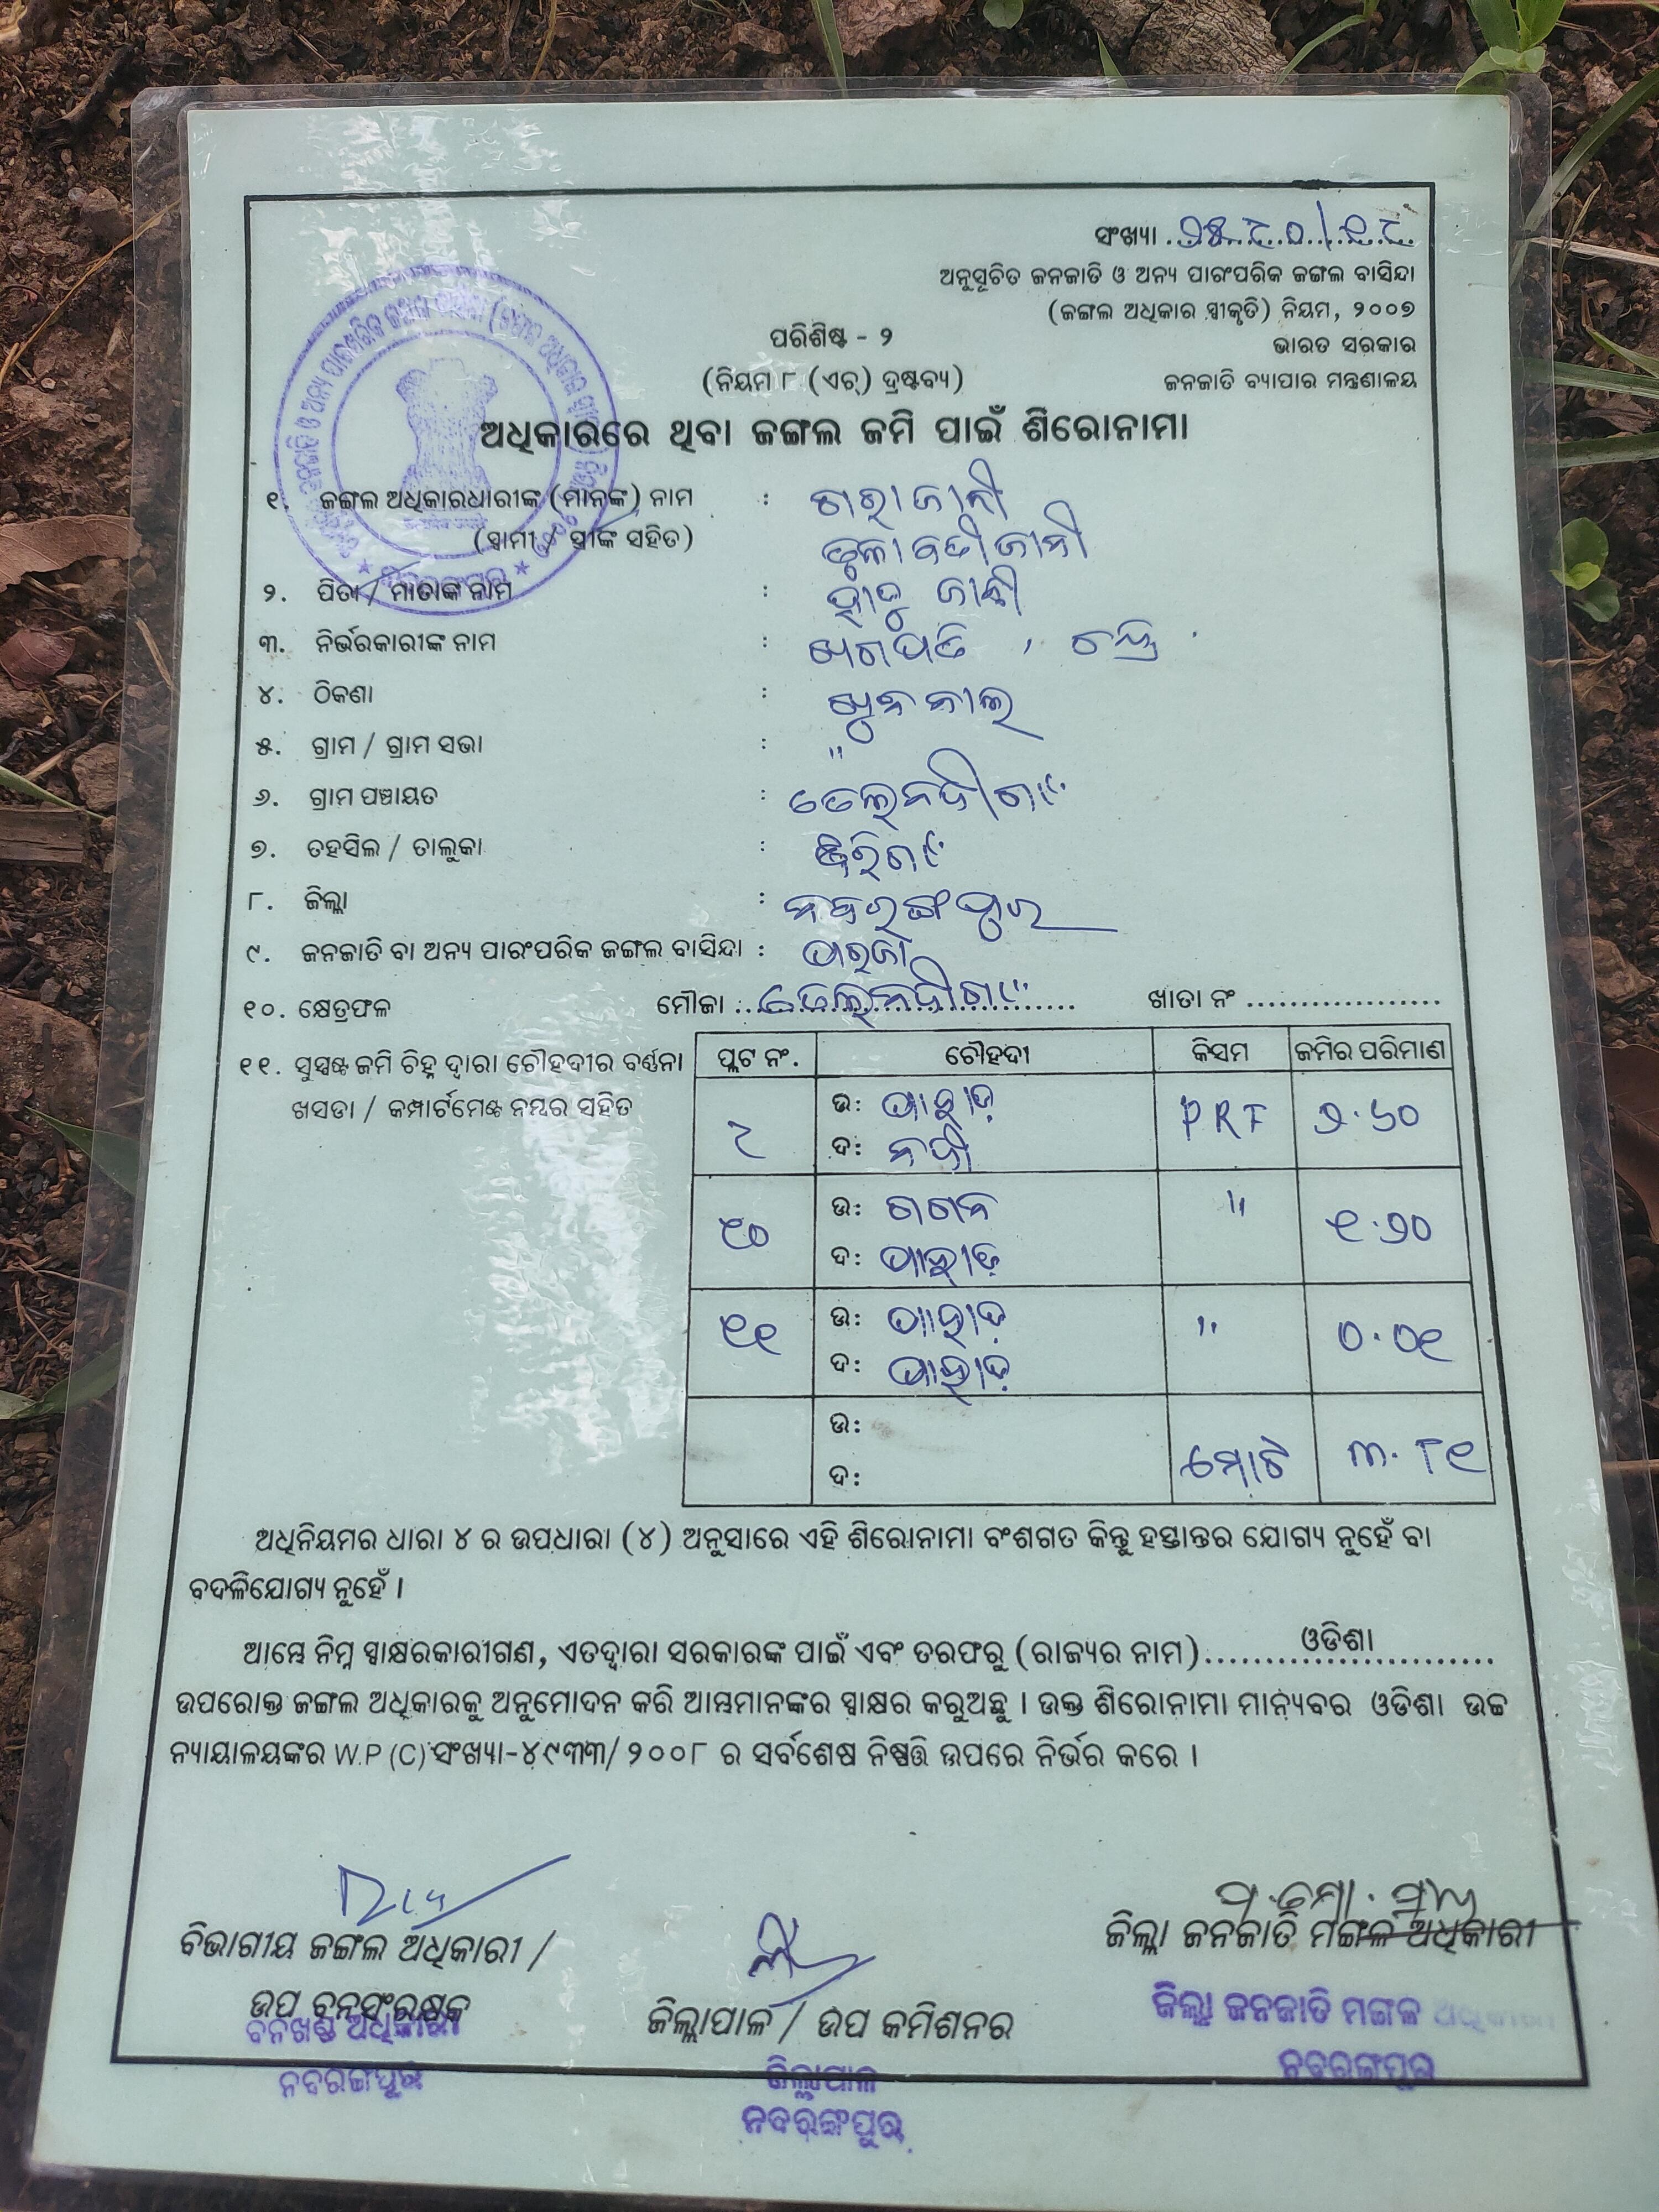 ସଂଖ୍ୟା
ଅନୁସୂଚିତ ଜନଜାତି ଓ ଅନ୍ୟ ପାରଂପରିକ ଜଙ୍ଗଲ ବାସିନ୍ଦା
(ଜଙ୍ଗଲ ଅଧିକାର ସ୍ୱୀକୃତି) ନିୟମ, ୨୦୦୭
ପରିଶିଷ୍ଟ - ୨
ଭାରତ ସରକାର
(ନିୟମ ୮ (ଏଚ୍) ଦ୍ରଷ୍ଟବ୍ୟ)
ଜନଜାତି ବ୍ୟାପାର ମନ୍ତ୍ରଣାଳୟ
ଅଧିକାରରେ ଥିବା ଜଙ୍ଗଲ ଜମି ପାଇଁ ଶିରୋନାମା
୧. ଜଙ୍ଗଲ ଅଧିକାରଧାରୀଙ୍କ (ମାନଙ୍କ) ନାମ :
(ସ୍ୱାମୀ / ସ୍ତ୍ରୀଙ୍କ ସହିତ) ଜାନୀ
୨. ପିତା / ମାତାଙ୍କ ନାମ :
୩. ନିର୍ଭରକାରୀଙ୍କ ନାମ :
୪. ଠିକଣା :
୫. ଗ୍ରାମ / ଗ୍ରାମ ସଭା : "
୬. ଗ୍ରାମ ପଞ୍ଚାୟତ : ତେଲନଦୀଗାଁ
୭. ତହସିଲ / ତାଲୁକା : ଝରିଗାଁ
୮. ଜିଲ୍ଲା : ନବରଙ୍ଗପୁର
୯. ଜନଜାତି ବା ଅନ୍ୟ ପାରଂପରିକ ଜଙ୍ଗଲ ବାସିନ୍ଦା : ପରଜା
୧୦. କ୍ଷେତ୍ରଫଳ ମୌଜା ... ତେଲନଦୀଗାଁ ... ଖାତା ନଂ ..................
୧୧. ସୁସ୍ପଷ୍ଟ ଜମି ଚିହ୍ନ ଦ୍ୱାରା ଚୌହଦୀର ବର୍ଣ୍ଣନା
ଖସଡା / କମ୍ପାର୍ଟମେଣ୍ଟ ନମ୍ବର ସହିତ
ପ୍ଲଟ ନଂ. ଚୌହଦୀ କିସମ ଜମିର ପରିମାଣ
ଉ: ପାହାଡ଼
୯ PRF ୨.୬୦
ଦ: ନଦୀ
ଉ: ଗଗନ "
୧୦ ୧.୨୦
ଦ: ପାହାଡ଼
ଉ: ପାହାଡ଼ "
୧୧ ୦.୦୧
ଦ: ପାହାଡ଼
ଉ:
ଦ: ମୋଟ ୩.୮୧
ଅଧିନିୟମର ଧାରା ୪ ର ଉପଧାରା (୪) ଅନୁସାରେ ଏହି ଶିରୋନାମା ବଂଶଗତ କିନ୍ତୁ ହସ୍ତାନ୍ତର ଯୋଗ୍ୟ ନୁହେଁ ବା
ବଦଳିଯୋଗ୍ୟ ନୁହେଁ ।
ଆମ୍ଭେ ନିମ୍ନ ସ୍ୱାକ୍ଷରକାରୀଗଣ, ଏତଦ୍ୱାରା ସରକାରଙ୍କ ପାଇଁ ଏବଂ ତରଫରୁ (ରାଜ୍ୟର ନାମ) ........ ଓଡିଶା ........
ଉପରୋକ୍ତ ଜଙ୍ଗଲ ଅଧିକାରକୁ ଅନୁମୋଦନ କରି ଆମ୍ଭମାନଙ୍କର ସ୍ୱାକ୍ଷର କରୁଅଛୁ । ଉକ୍ତ ଶିରୋନାମା ମାନ୍ୟବର ଓଡିଶା ଉଚ୍ଚ
ନ୍ୟାୟାଳୟଙ୍କର W.P (C) ସଂଖ୍ୟା-୪୯୩୩/ ୨୦୦୮ ର ସର୍ବଶେଷ ନିଷ୍ପତ୍ତି ଉପରେ ନିର୍ଭର କରେ ।
ବିଭାଗୀୟ ଜଙ୍ଗଲ ଅଧିକାରୀ /
ଉପ ବନସଂରକ୍ଷକ
ବନଖଣ୍ଡ ଅଧିକାରୀ
ନବରଙ୍ଗପୁର
ଜିଲ୍ଲାପାଳ / ଉପ କମିଶନର
ଜିଲ୍ଲାପାଳ
ନବରଙ୍ଗପୁର
ଜିଲ୍ଲା ଜନଜାତି ମଙ୍ଗଳ ଅଧିକାରୀ
ଜିଲ୍ଲା ଜନଜାତି ମଙ୍ଗଳ ଅଧିକାରୀ
ନବରଙ୍ଗପୁର